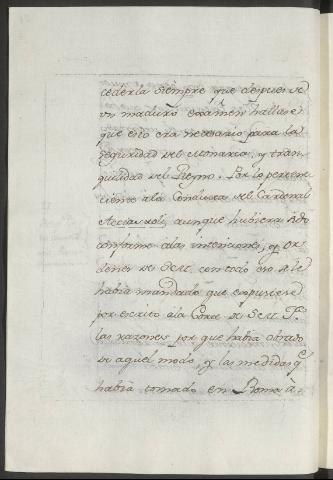 cederla siempre que despues de
un maduro examen hallase
que esto era necesario para la
seguridad del Monarca, y tran
quilidad del Reyno. Por lo pertene
ciente a la Conducta del Cardenal
aunque hubiera sido
conforme a las intenciones, y or
denes de S. M. con todo eso se le
habia mandado que expusiese
por escrito a la Corte de S. M. F.
las razones por que habia obrado
de aquel modo, y las medidas q.e
habia tomado en Roma à